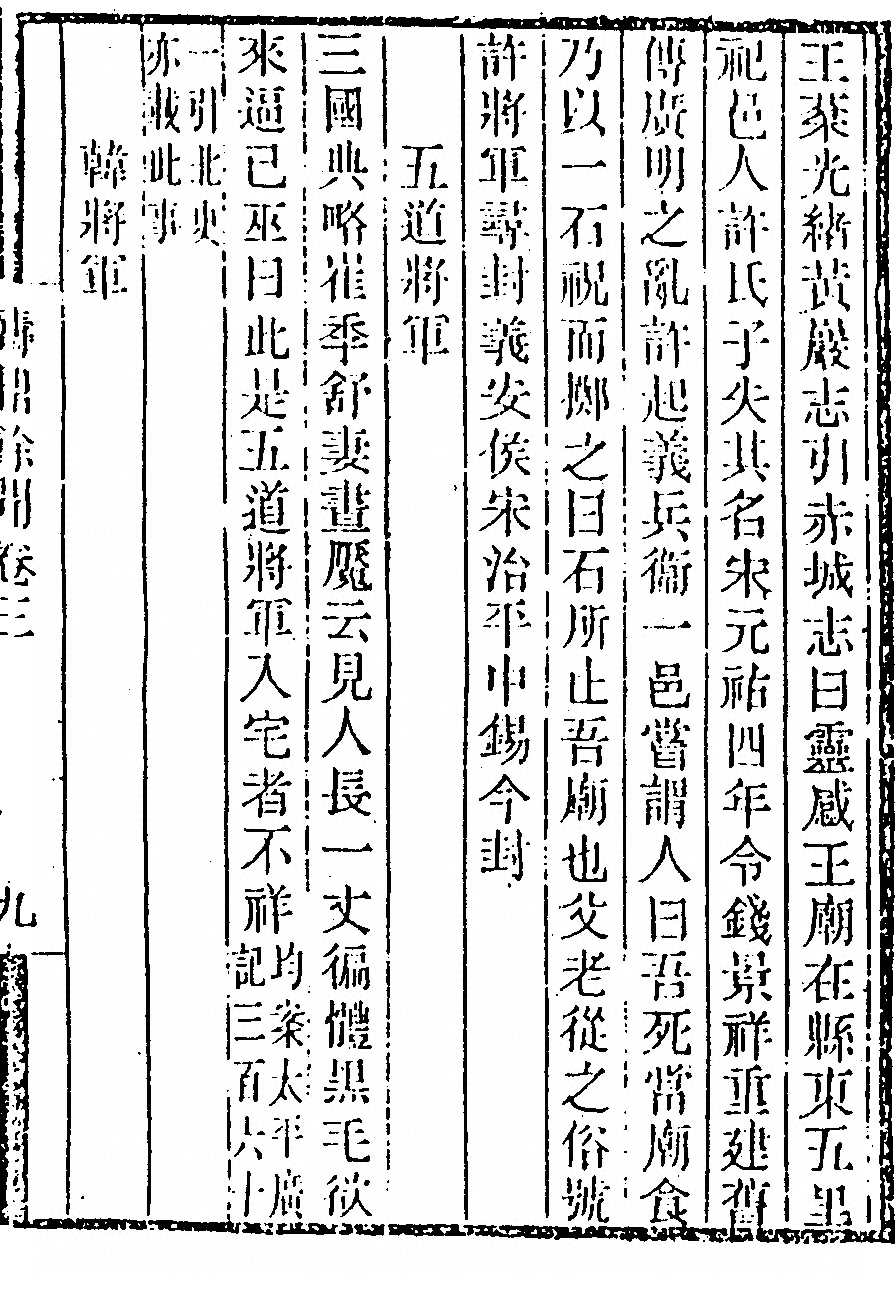 王棻光緒黃巖志引赤城志曰靈感王廟在縣東五里
祀邑人許氏子失其名宋元祐四年令錢景祥重建舊
傳廣明之亂許起義兵衞一邑嘗謂人曰吾死當廟食
乃以一石祝而擲之曰石所止吾廟也父老從之俗號
許將軍尋封義安侯宋治平中錫今封
五道將軍
三國典略崔季舒妻晝魘云見人長一丈徧體黑毛欲
來逼己巫曰此是五道將軍入宅者不祥均案太平廣
記三百六十
一引北史
亦載此事
韓將軍
卷三
九